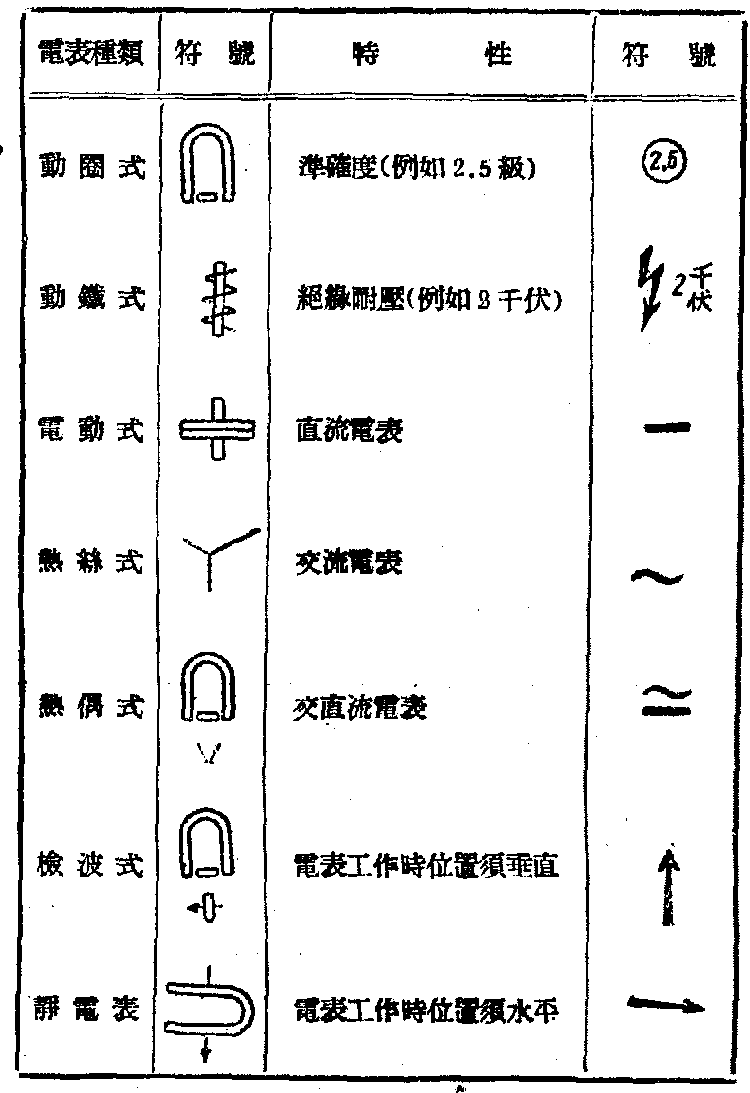 電表種類 符號 特性 符號
動圈式 準確度(例如2.5級) 2,5
動鐵式 絕緣耐壓(例如2千伏) 2千伏
電動式 直流電表
熱絲式 交流電表
熱偶式 交直流電表
檢波式 電表工作時位置須垂直
靜電表 電表工作時位置須水平